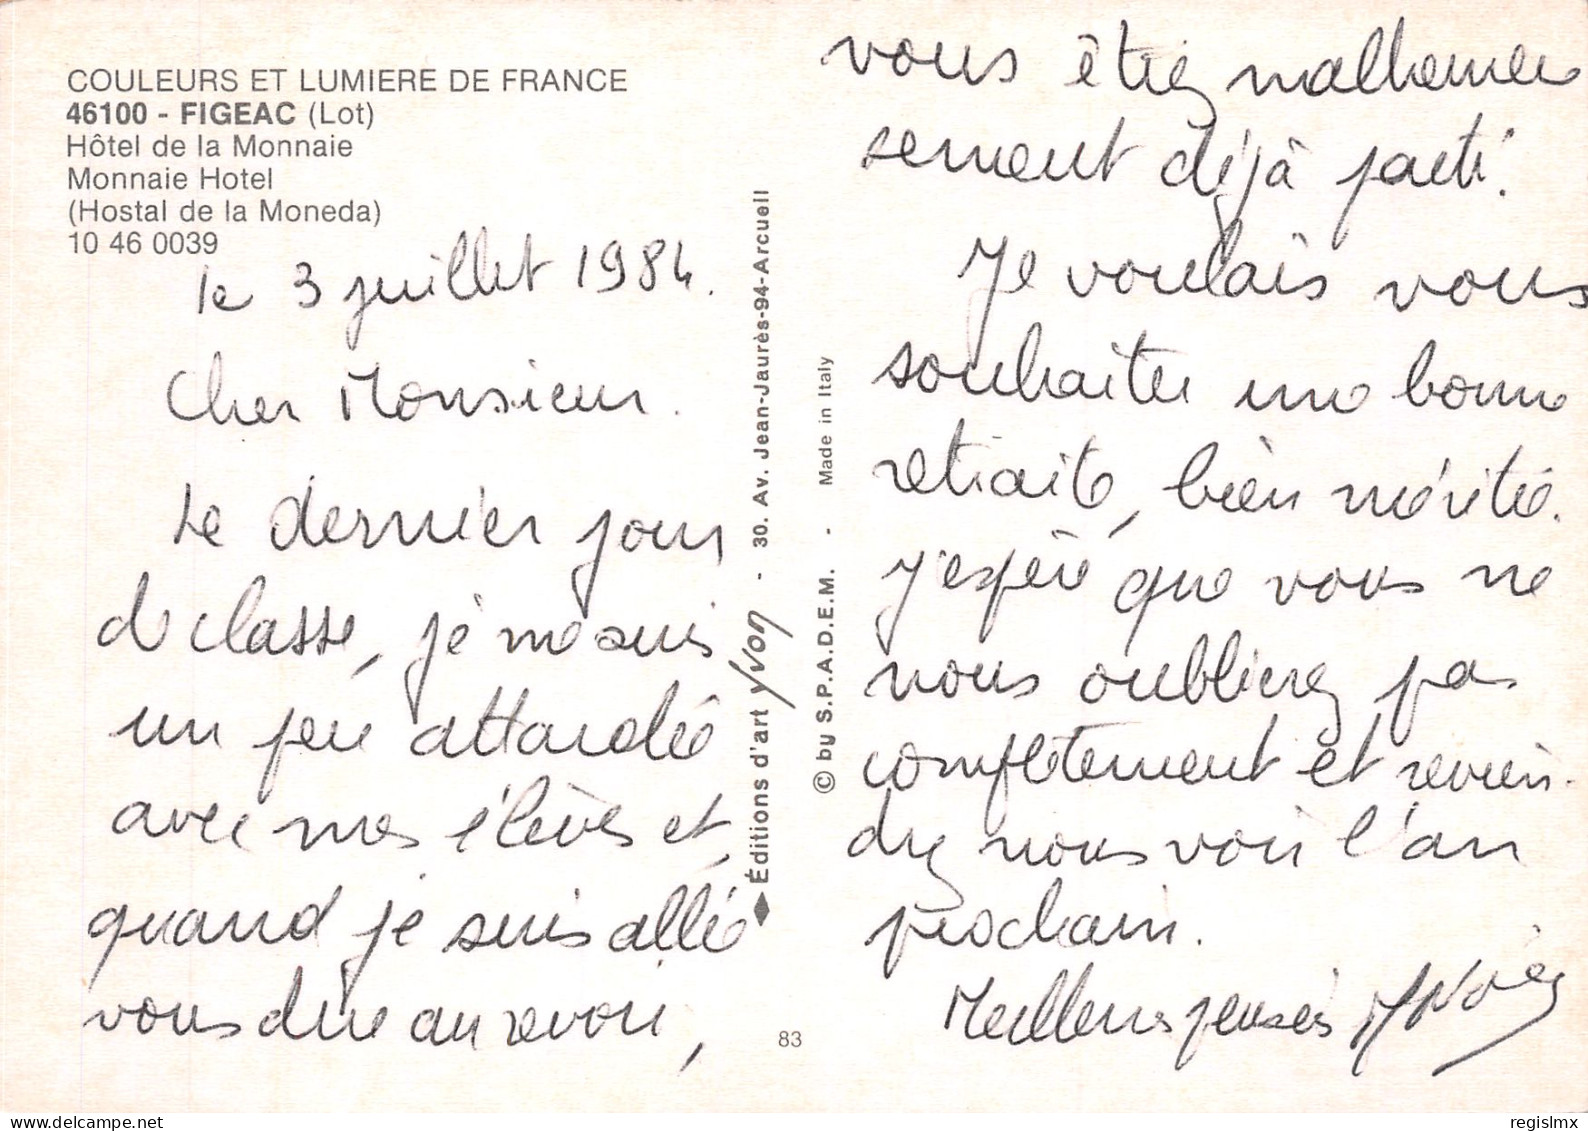 COULEURS ET LUMIERE DE FRANCE
46100 - FIGEAC (Lot)
Hôtel de la Monnaie
Monnaie Hotel
(Hostal de la Moneda)
10 46 0039
le 3 juillet 1984.
Cher Monsieur.
Le dernier jour
de classe, je me suis
un peu attardée
avec mes élèves et,
quand je suis allée
vous dire au revoir,
vous étiez malheureu
sement déjà parti.
Je voulais vous
souhaiter une bonne
retraite, bien méritée.
J'espère que vous ne
nous oublierez pas
complètement et revien-
drez nous voir l'an
prochain.
Meilleures pensées
Éditions d'art yvon - 30. Av. Jean-Jaurès-94-Arcueil
© by S.P.A.D.E.M. - Made in Italy
83
regislmx